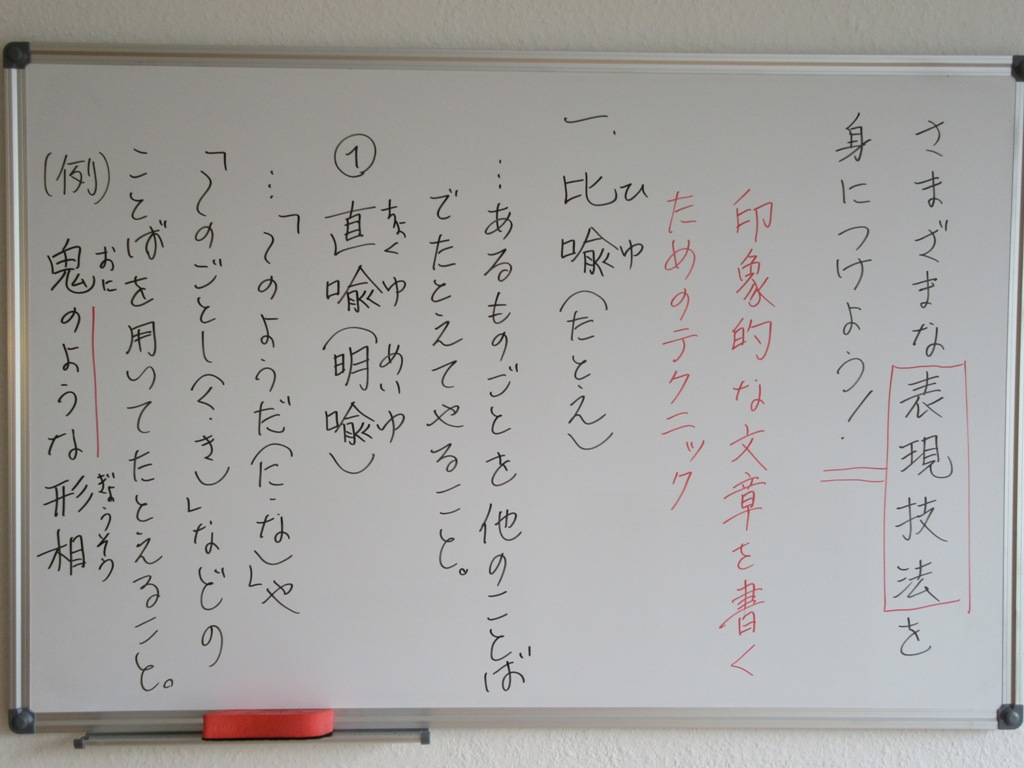 さまざまな表現技法を
身につけよう!
印象的な文章を書く
ためのテクニック
一、比喩(たとえ)
ひゆ
…あるものごとを他のことば
でたとえてやること。
① 直喩(明喩)
ちょくゆ めいゆ
…「〜のようだ(に・な)」や
「〜のごとし(く・き)」などの
ことばを用いてたとえること。
(例)鬼のような形相
おに ぎょうそう